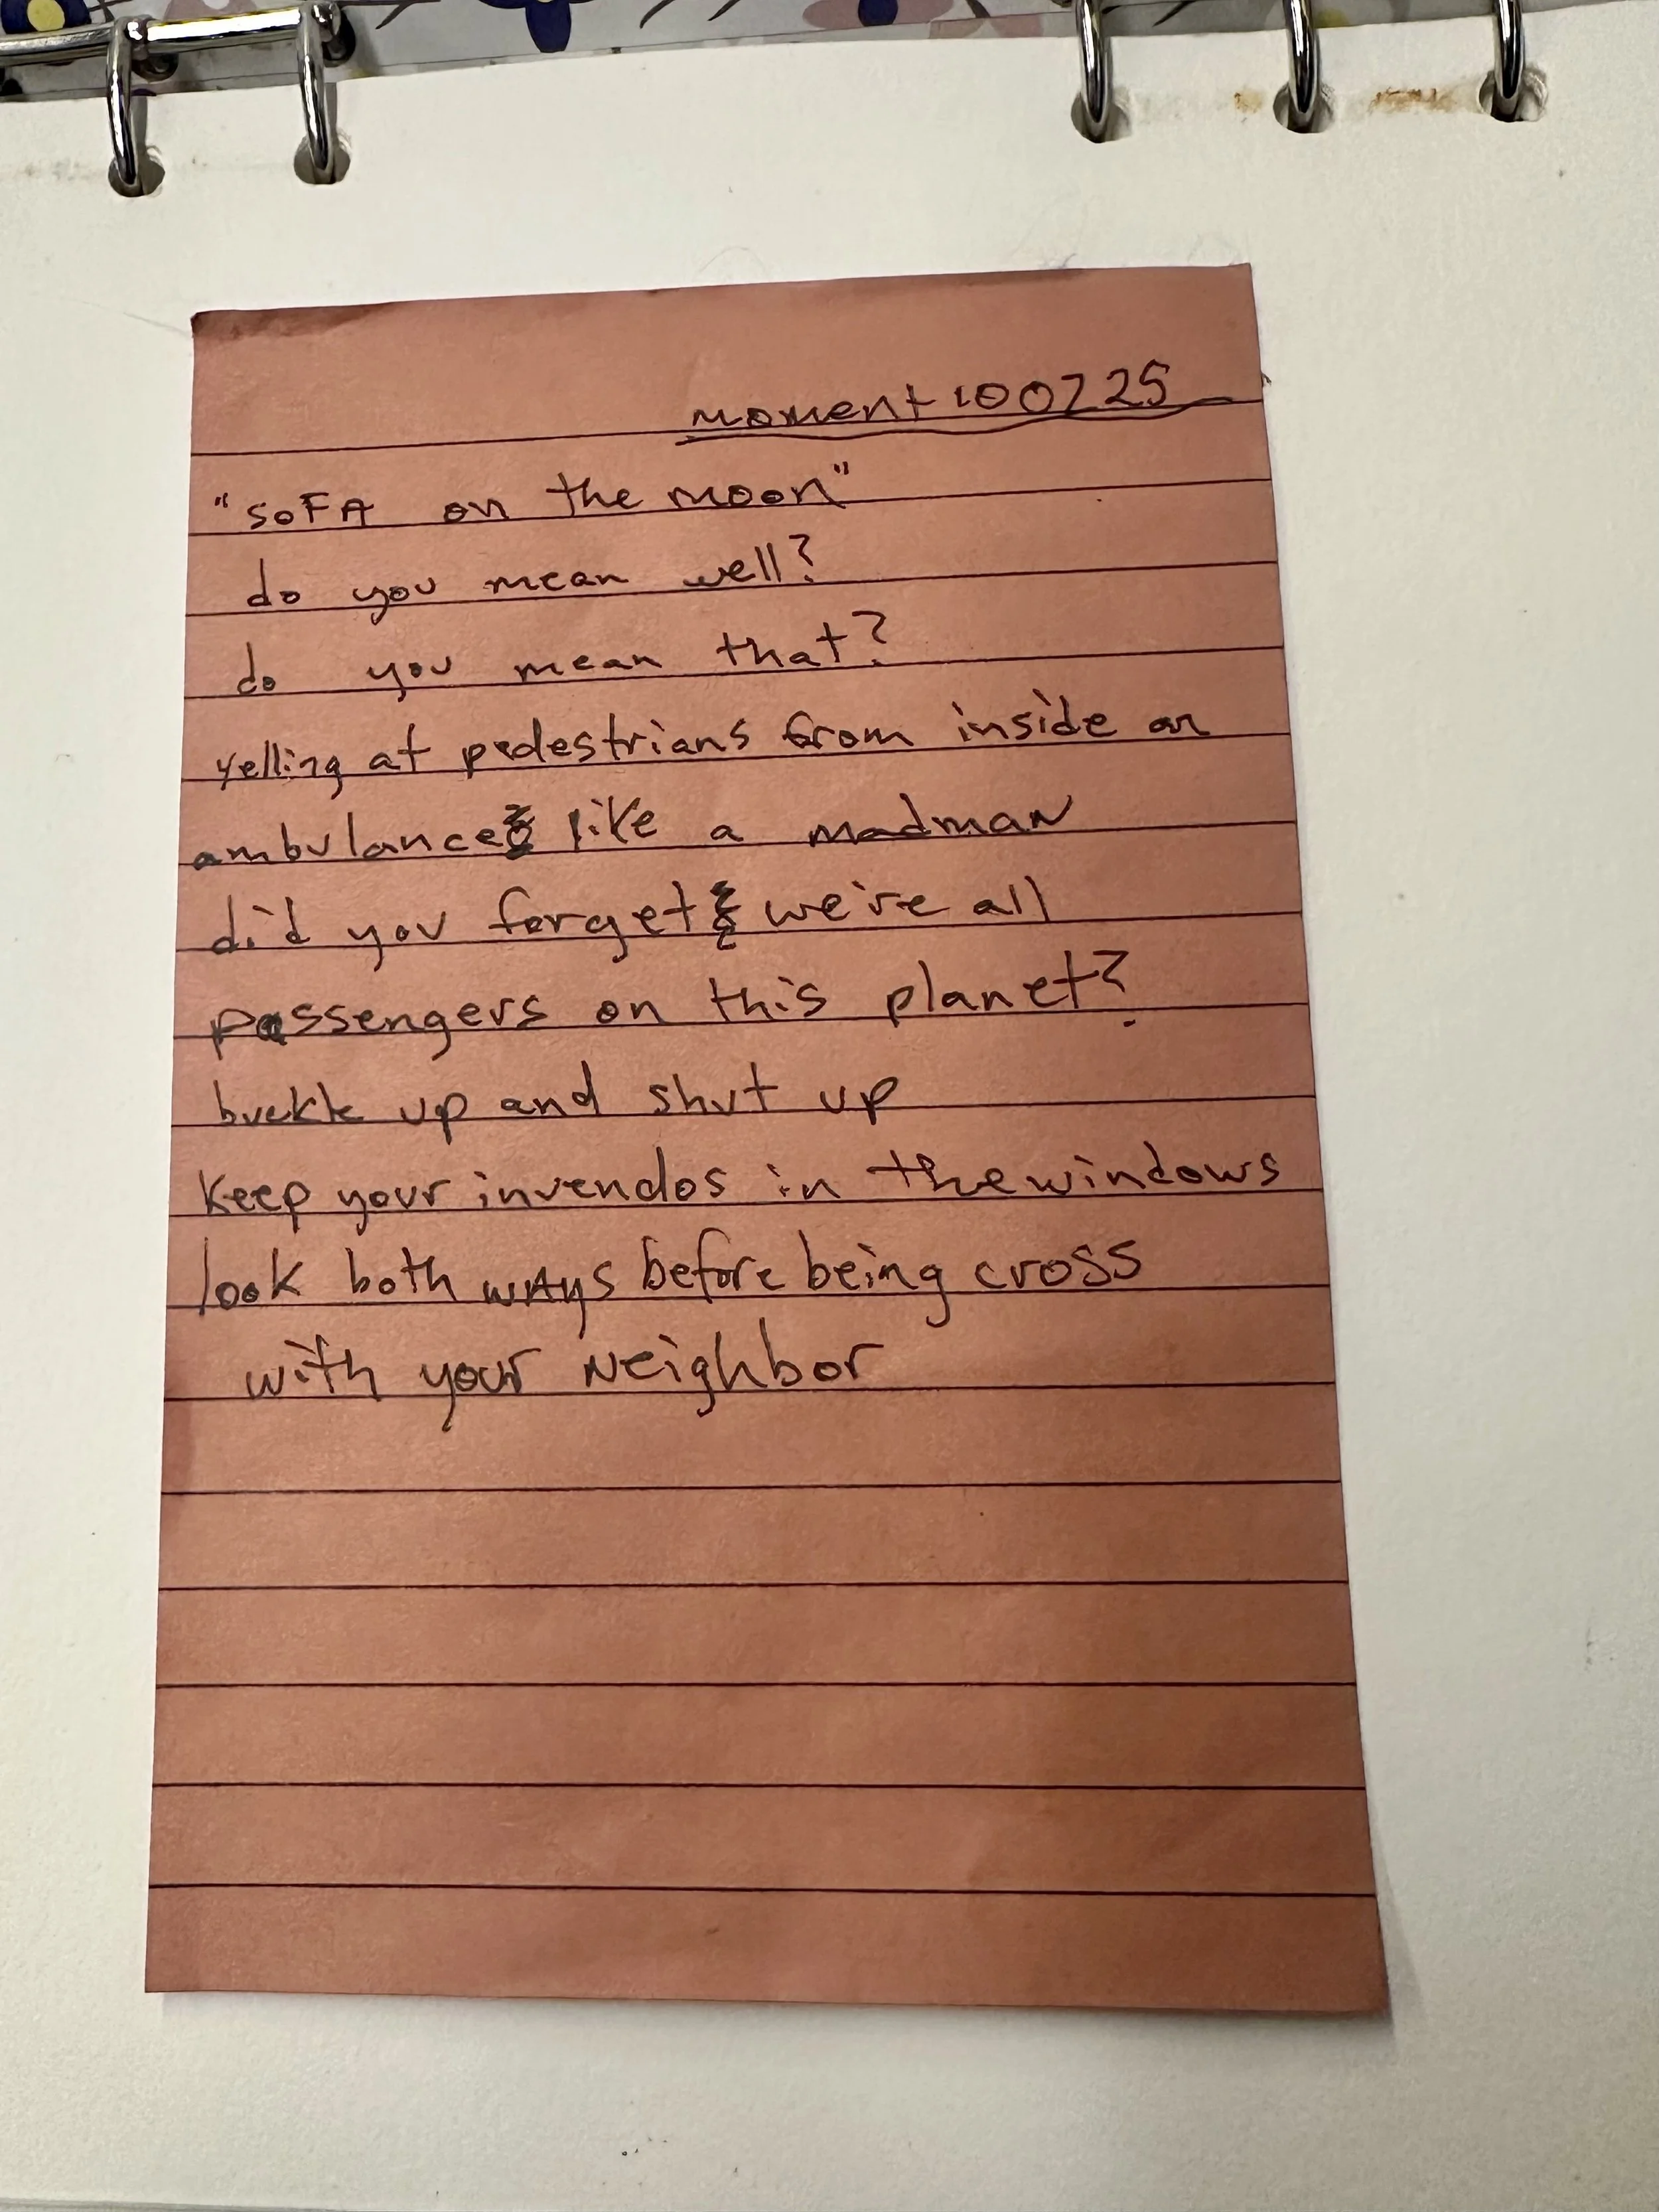 moment 100725
"SOFA on the moon"
do you mean well?
do you mean that?
yelling at pedestrians from inside an
ambulance like a madman
did you forget we're all
passengers on this planet?
buckle up and shut up
keep your invendos in the windows
look both ways before being cross
with your neighbor